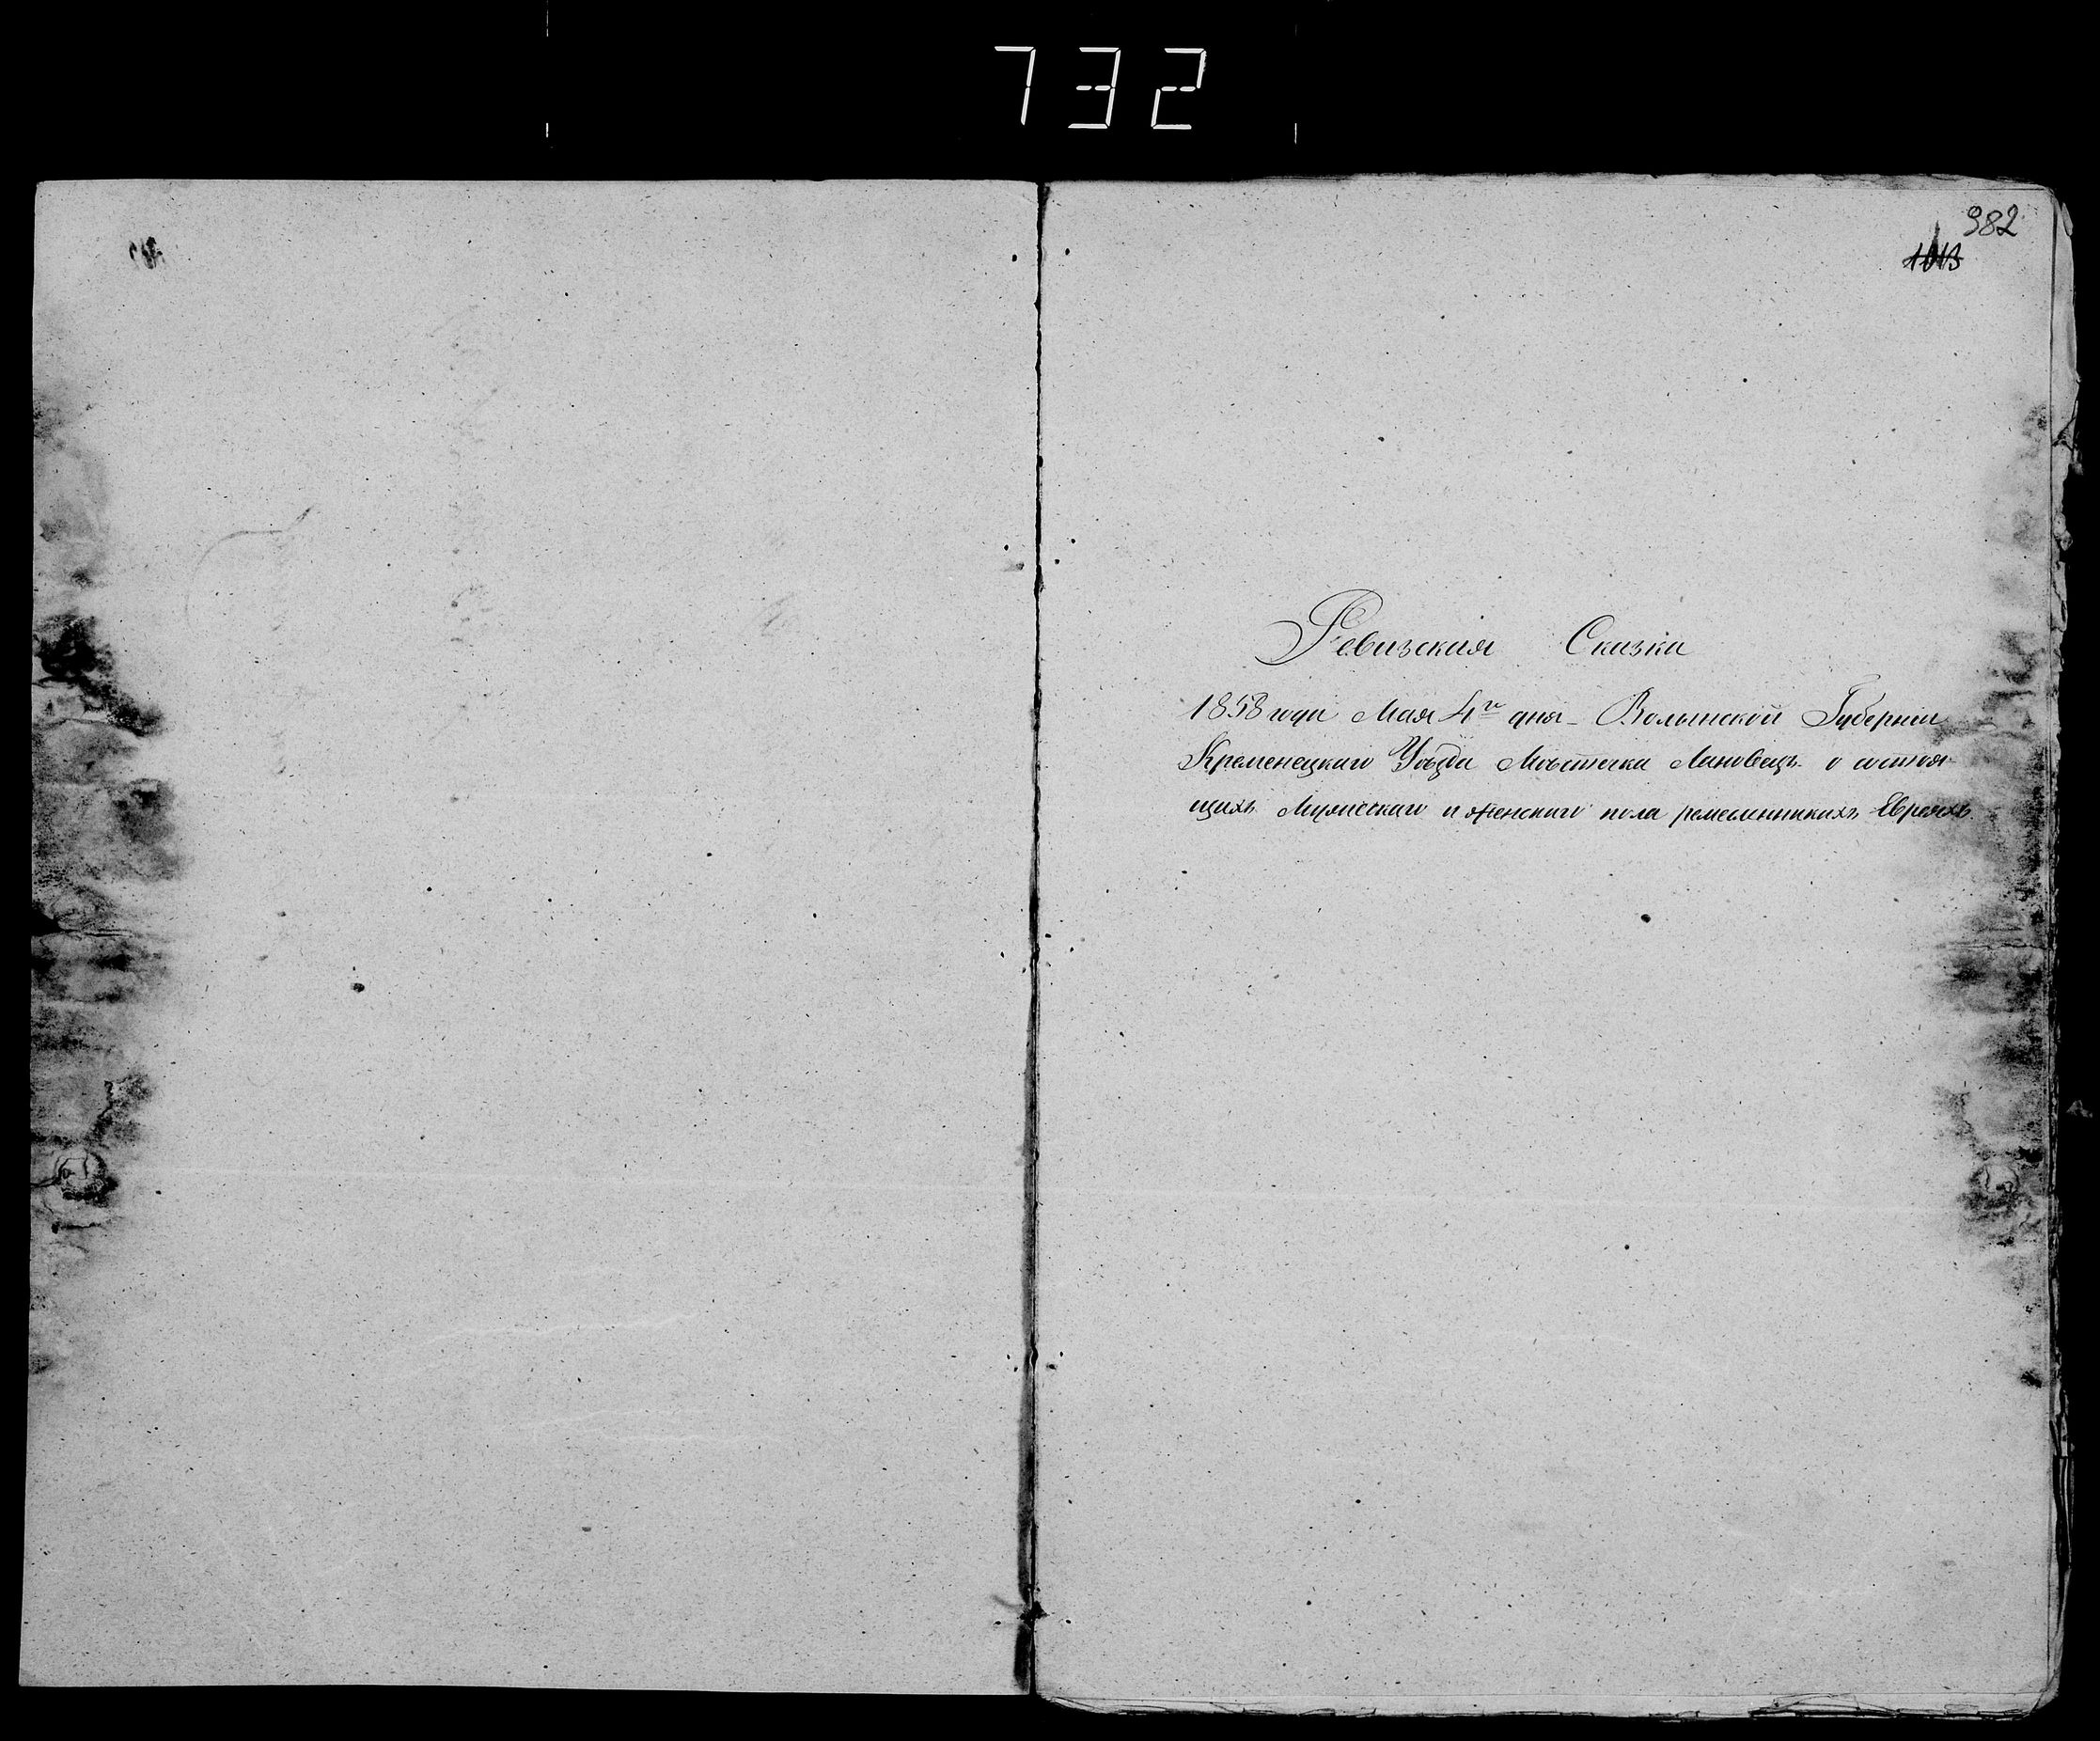 732
982
1013
Ревизская Сказка
1858 года Мая 4го дня – Волынской Губерніи
Кременецкаго Уѣзда Мѣстечка Лановецъ о состоя-
щихъ Мужескаго и женскаго пола ремесленникахъ Евреяхъ.